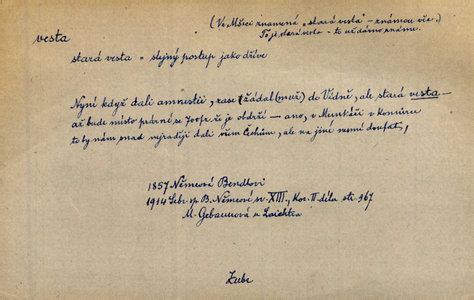 (Ve Mšeci znamená „stará vesta" – známou věc.)
vesta
To je stará vesta – to už dávno známe.
stará vesta = stejný postup jako dříve
Nyní když dali amnestii, zase žádal (muž) do Vídně, ale stará vesta –
až bude místo prázné se že je obdrží – ano, v Munkáči v Komisu
to by nám snad nejraději dali všem Čechům, ale na jiné nemá doufat,
1857 Němcová Bendlovi
1914 Sebr. sp. B. Němcové sv. XIII, Kor. II díla str. 367
M. Gebauerová u Laichtra
Zubr